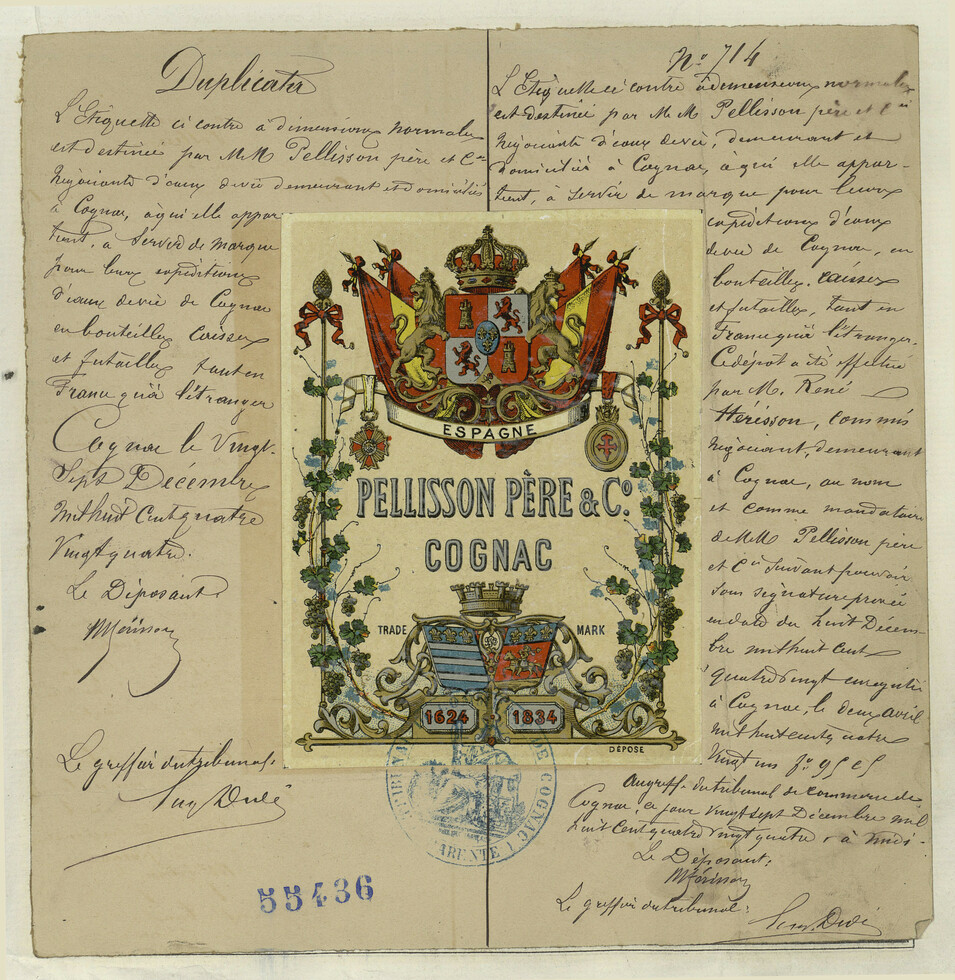 Duplicata
L'Etiquette ci contre à dimensions normales
est destinée par M.M. Pellisson père et Cie
Négociants d'eaux de vie, demeurant et domiciliés
à Cognac, à qui elle appar
tient, à servir de marque
pour leurs expéditions
d'eaux de vie de Cognac
en bouteilles caisses
et futailles tant en
France qu'à l'étranger
Cognac le Vingt-
Sept Décembre
mil huit Cent quatre
Vingt quatre.
Le Déposant
Le greffier du tribunal.
55436
No 714
L'Etiquette ci contre à dimensions normales
est destinée par M.M. Pellisson père et Cie
Négociants d'eaux de vie, demeurant et
domiciliés à Cognac, à qui elle appar-
tient, à servir de marque pour leurs
expéditions d'eaux
de vie de Cognac, en
bouteilles, caisses
et futailles, tant en
France qu'à l'étranger.
Ce dépôt a été effectué
par M. René
Hérisson, commis
négociant, demeurant
à Cognac, au nom
et comme mandataire
de M.M. Pellisson père
et Cie suivant pouvoir
sous signature privée
en date du huit Décem-
bre mil huit cent
quatre vingt enregistré
à Cognac, le deux avril
mil huit cent quatre
Vingt un
Au greffe du tribunal de commerce de
Cognac, ce jour vingt sept Décembre mil
huit cent quatre vingt quatre, à midi.
Le Déposant,
Le greffier du tribunal:
ESPAGNE
PELLISSON PÈRE & Co.
COGNAC
TRADE MARK
1624 1834
DÉPOSÉ
TRIBUNAL DE COGNAC